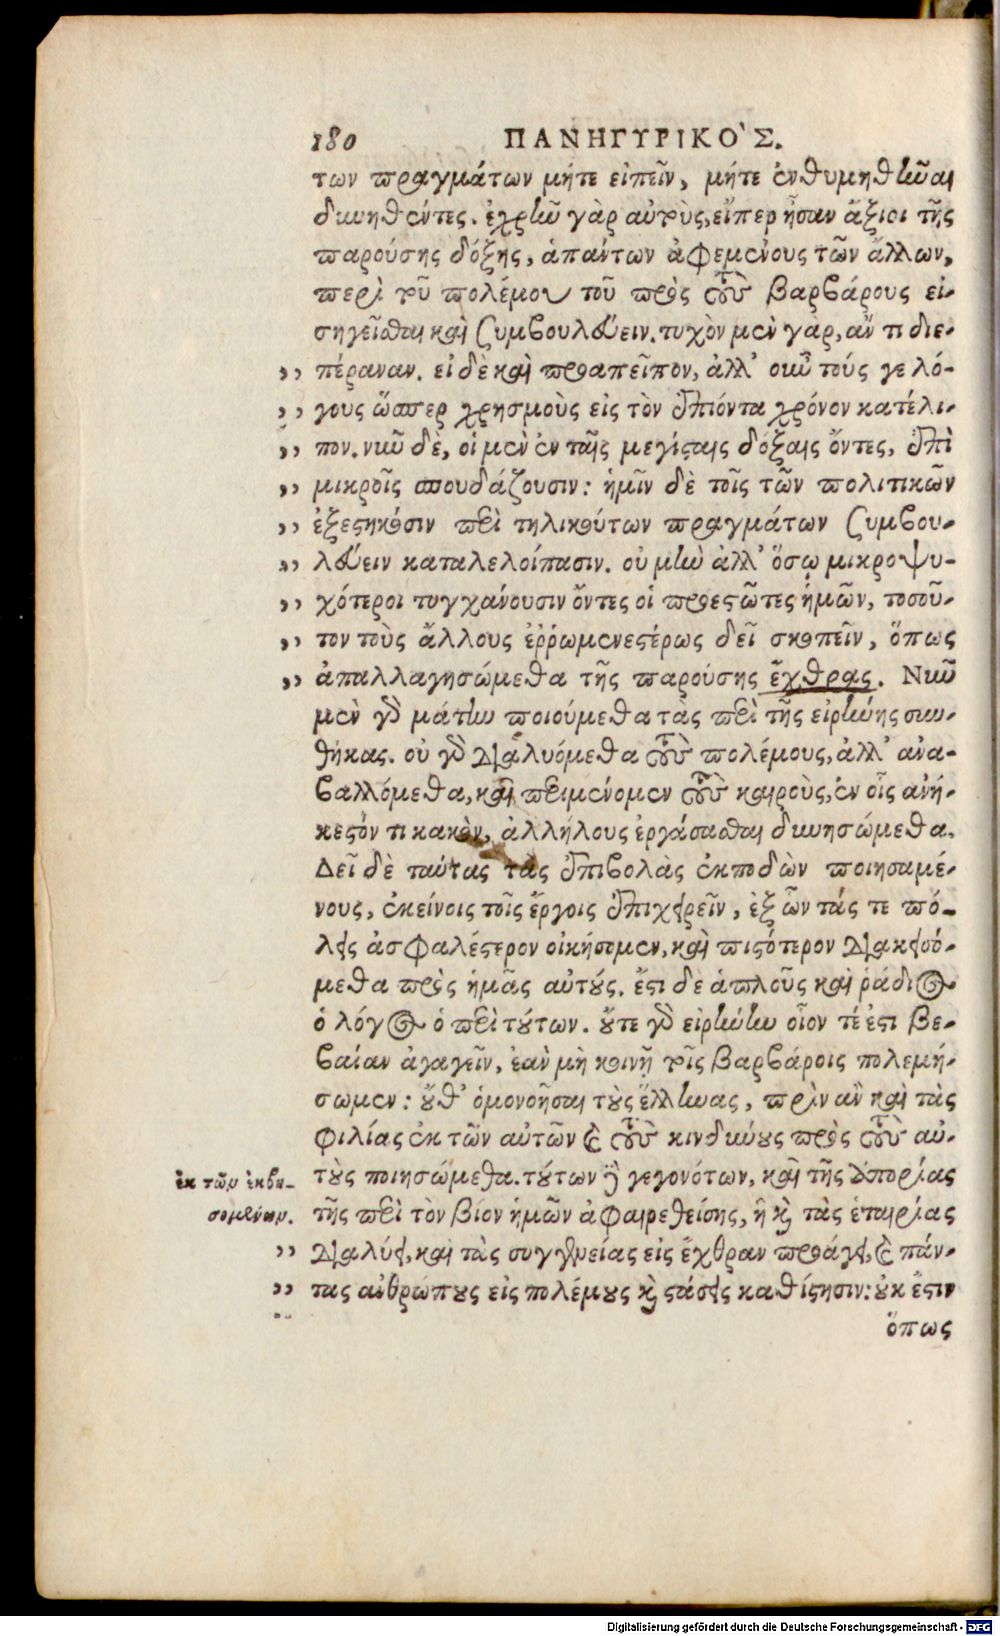 180 ΠΑΝΗΓΥΡΙΚΟ'Σ.
των πραγμάτων μήτε εἰπεῖν, μήτε ἐνθυμηθῆναι
δυνηθέντες. ἐχρῆν γὰρ αὐτοὺς, εἴπερ ἦσαν ἄξιοι τῆς
παρούσης δόξης, ἁπάντων ἀφεμένους τῶν ἄλλων,
περὶ τοῦ πολέμου τοῦ πρὸς τοὺς βαρβάρους εἰ-
σηγεῖσθαι καὶ ξυμβουλεύειν. τυχὸν μὲν γὰρ, ἄν τι διε-
„ πέραναν. εἰ δὲ καὶ προαπεῖπον, ἀλλ' οὖν τούς γε λό-
„ γους ὥσπερ χρησμοὺς εἰς τὸν ἐπιόντα χρόνον κατέλι-
„ πον. νῦν δὲ, οἱ μὲν ἐν ταῖς μεγίσταις δόξαις ὄντες, ἐπὶ
„ μικροῖς σπουδάζουσιν: ἡμῖν δὲ τοῖς τῶν πολιτικῶν
„ ἐξεστηκόσιν περὶ τηλικούτων πραγμάτων ξυμβου-
„ λεύειν καταλελοίπασιν. οὐ μὴν ἀλλ' ὅσῳ μικροψυ-
„ χότεροι τυγχάνουσιν ὄντες οἱ προεστῶτες ἡμῶν, τοσοῦ-
„ τον τοὺς ἄλλους ἐῤῥωμενεστέρως δεῖ σκοπεῖν, ὅπως
„ ἀπαλλαγησώμεθα τῆς παρούσης ἔχθρας. Νῦν
μὲν γὰρ μάτην ποιούμεθα τὰς περὶ τῆς εἰρήνης συν-
θήκας. οὐ γὰρ διαλυόμεθα τοὺς πολέμους, ἀλλ' ἀνα-
βαλλόμεθα, καὶ περιμένομεν τοὺς καιροὺς, ἐν οἷς ἀνή-
κεστόν τι κακὸν, ἀλλήλους ἐργάσασθαι δυνησώμεθα.
Δεῖ δὲ ταύτας τὰς ἐπιβολὰς ἐκποδὼν ποιησαμέ-
νους, ἐκείνοις τοῖς ἔργοις ἐπιχειρεῖν, ἐξ ὧν τάς τε πό-
λεις ἀσφαλέστερον οἰκήσομεν, καὶ πιστότερον διακεισό-
μεθα πρὸς ἡμᾶς αὐτούς. ἔστι δε ἁπλοῦς καὶ ῥάδιος
ὁ λόγος ὁ περὶ τούτων. οὔτε γὰρ εἰρήνην οἷον τέ ἐστι βε-
βαίαν ἀγαγεῖν, ἐὰν μὴ κοινῇ τοῖς βαρβάροις πολεμή-
σωμεν: οὔθ' ὁμονοῆσαι τοὺς ἕλληνας, πρὶν ἂν καὶ τὰς
φιλίας ἐκ τῶν αὐτῶν καὶ τοὺς κινδύνους πρὸς τοὺς αὐ-
τοὺς ποιησώμεθα. τούτων δὲ γεγονότων, καὶ τῆς ἀπορίας
ἐκ τῶν ἐκβη-
σομένων.
τῆς περὶ τὸν βίον ἡμῶν ἀφαιρεθείσης, ἣ καὶ τὰς ἑταιρίας
„ διαλύει, καὶ τὰς συγγενείας εἰς ἔχθραν προάγει, καὶ πάν-
„ τας ἀνθρώπους εἰς πολέμους καὶ στάσεις καθίστησιν: οὐκ ἔστιν
ὅπως
Digitalisierung gefördert durch die Deutsche Forschungsgemeinschaft - DFG